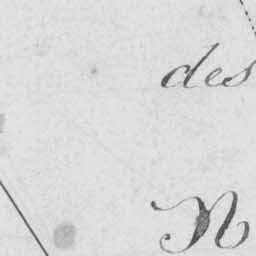 des
N